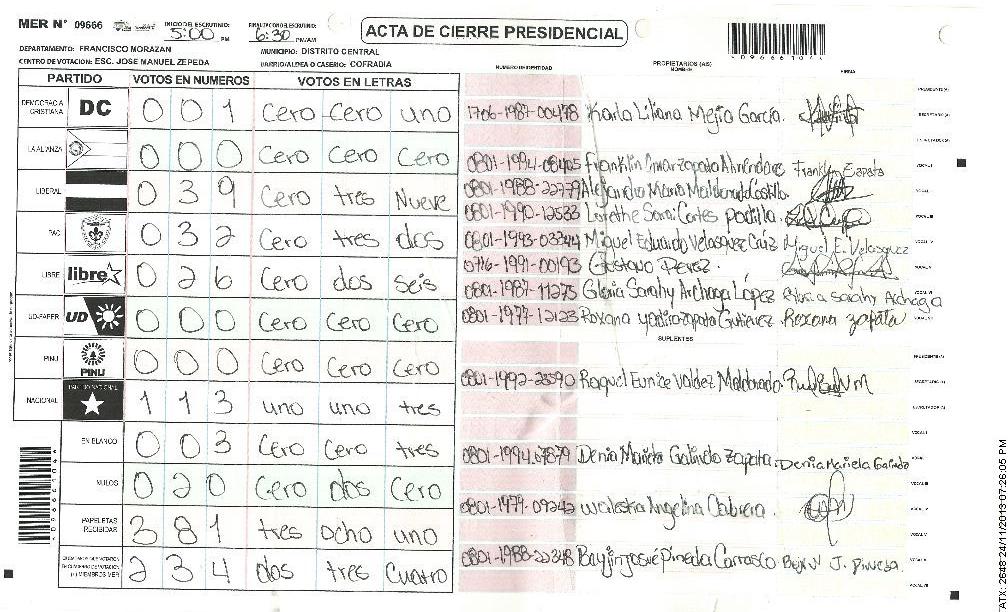 MER N° 09666
INICIO DEL ESCRUTINIO: 5:00 PM
FINALIZACION ESCRUTINIO: 6:30 PM/AM
ACTA DE CIERRE PRESIDENCIAL
DEPARTAMENTO: FRANCISCO MORAZAN
MUNICIPIO: DISTRITO CENTRAL
CENTRO DE VOTACION: ESC. JOSE MANUEL ZEPEDA
BARRIO/ALDEA O CASERIO: COFRADIA
PARTIDO VOTOS EN NUMEROS VOTOS EN LETRAS
DEMOCRACIA CRISTIANA DC 0 0 1 Cero Cero uno
LA ALIANZA 0 0 0 Cero Cero Cero
LIBERAL 0 3 9 Cero tres Nueve
PAC 0 3 2 Cero tres dos
LIBRE libre 0 2 6 Cero dos seis
UD-FAPER UD 0 0 0 Cero Cero Cero
PINU PINU 0 0 0 Cero Cero Cero
NACIONAL PARTIDO NACIONAL 1 1 3 uno uno tres
EN BLANCO 0 0 3 Cero Cero tres
NULOS 0 2 0 Cero dos Cero
PAPELETAS RECIBIDAS 3 8 1 tres ocho uno
2 3 4 dos tres cuatro
NUMERO DE IDENTIDAD PROPIETARIOS (AS) NOMBRE FIRMA
PRESIDENTE(A)
1706-1987-00478 Karla Liliana Mejia Garcia. SECRETARIO(A)
ESCRUTADOR(A)
0801-1994-08405 Franklin Omar Zapata Franklyn Zapata VOCAL I
0801-1988-22779 Alejandro Mario Maldonado Castillo VOCAL II
0801-1990-12533 Lorethe Sarai Cortes Padilla. VOCAL III
0801-1993-03744 Miguel Eduardo Velasquez Caiz Miguel E. Velasquez VOCAL IV
0716-1991-00193 Gustavo Perez. VOCAL V
0801-1987-11275 Gloria Sarahy Archaga López Gloria Sarahy Achaga
0801-1977-12123 Roxana Yadira Zapata Gutierez. Roxana Zapata
SUPLENTES
PRESIDENTE(A)
0801-1992-23590 Raquel Eunice Valdez Maldonado SECRETARIO(A)
ESCRUTADOR(A)
VOCAL I
0801-1994-07879 Denia Mariela Galindo Zapata. Denia Mariela Galindo
VOCAL III
0801-1979-09242 Waleska Angelina Cabrera. VOCAL IV
VOCAL V
0801-1988-22348 Josué Pineda Carrasco J. Pineda
TX: 2648:24/11/2013-07:26:05 PM